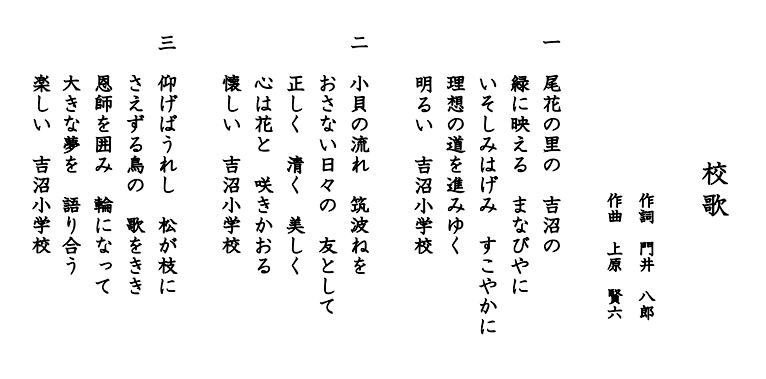 校歌
作詞　門井　八郎
作曲　上原　賢六
一　尾花の里の　吉沼の
緑に映える　まなびやに
いそしみはげみ　すこやかに
理想の道を進みゆく
明るい　吉沼小学校
二　小貝の流れ　筑波ねを
おさない日々の　友として
正しく　清く　美しく
心は花と　咲きかおる
懐しい　吉沼小学校
三　仰げばうれし　松が枝に
さえずる鳥の　歌をきき
恩師を囲み　輪になって
大きな夢を　語り合う
楽しい　吉沼小学校